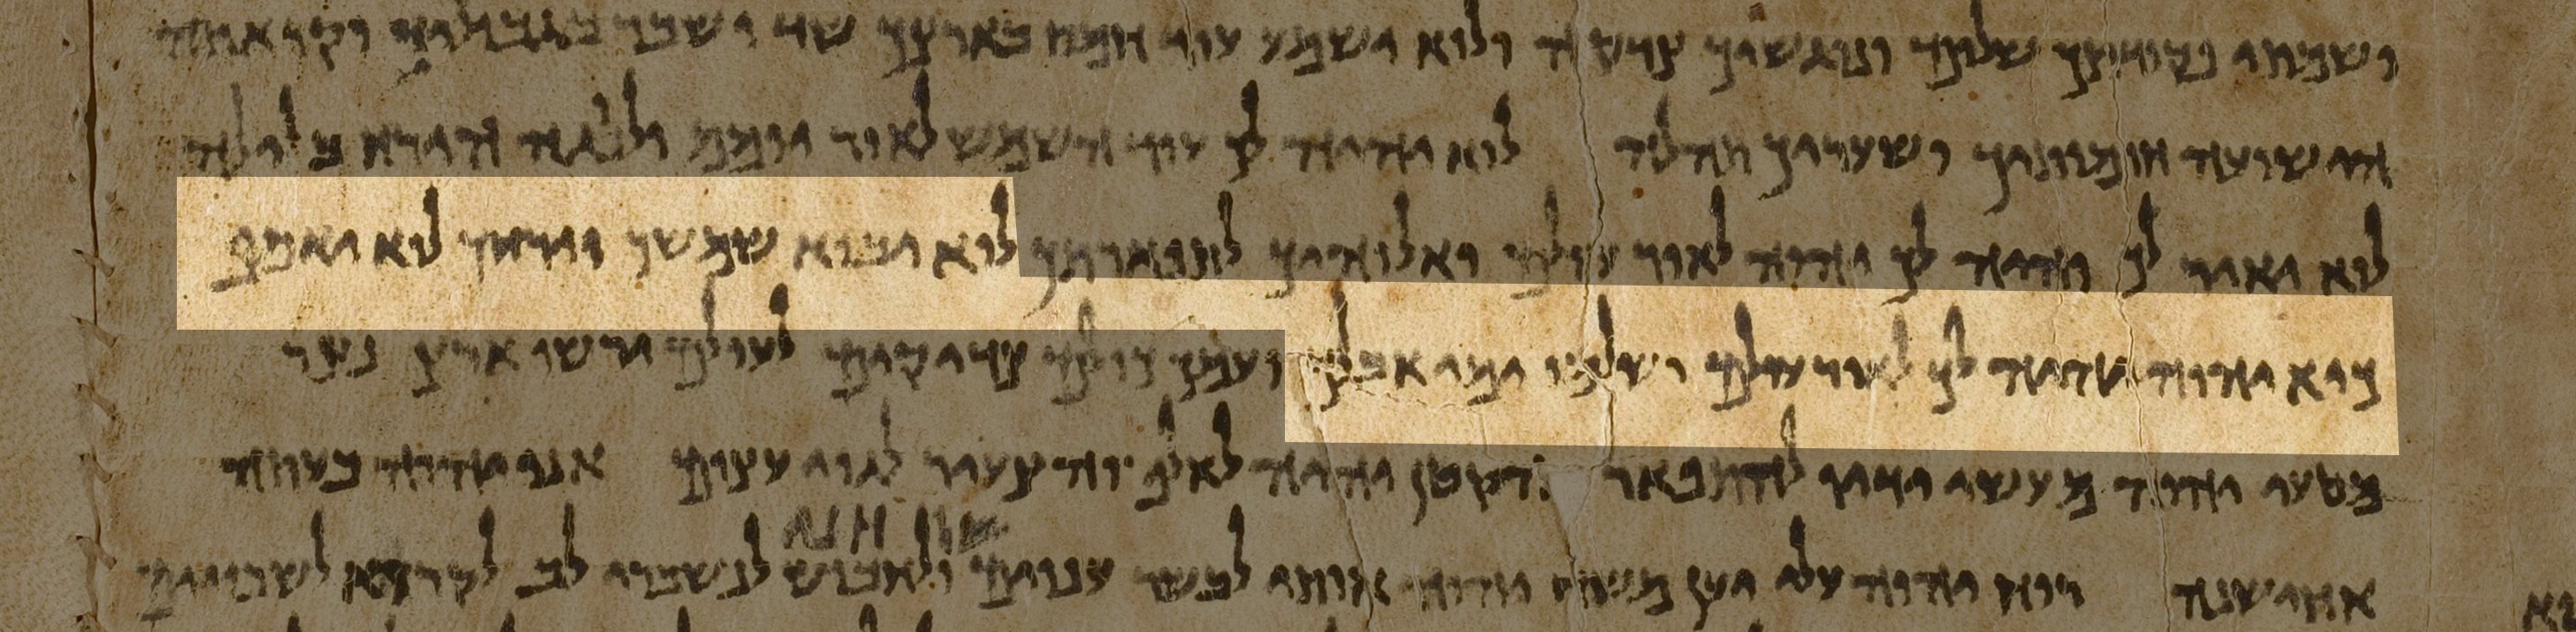 ושמתי פקודתך שלום ונוגשיך צדקה ולוא ישמע עוד חמס בארצך שד ושבר בגבוליך וקראתי
ישועה חומותיך ושעריך תהלה לוא יהיה לך עוד השמש לאור יומם ולנגה הירח בלילה
לוא יאיר לך והיה לך יהוה לאור עולם ואלוהיך לתפארתך לוא יבוא שמשך וירחך לוא יאסף
כיא יהוה יהיה לך לאור עולם ושלמו ימי אבלך ועמך כולם צדיקים לעולם ירשו ארץ נצר
מטעי יהוה מעשי ידיו להתפאר הקטן יהיה לאלף והצעיר לגוי עצום אני יהוה בעתה
שלחני
אחישנה רוח יהוה עלי יען משח יהוה אותי לבשר ענוים ולחבוש לנשברי לב לקרוא לשבויים